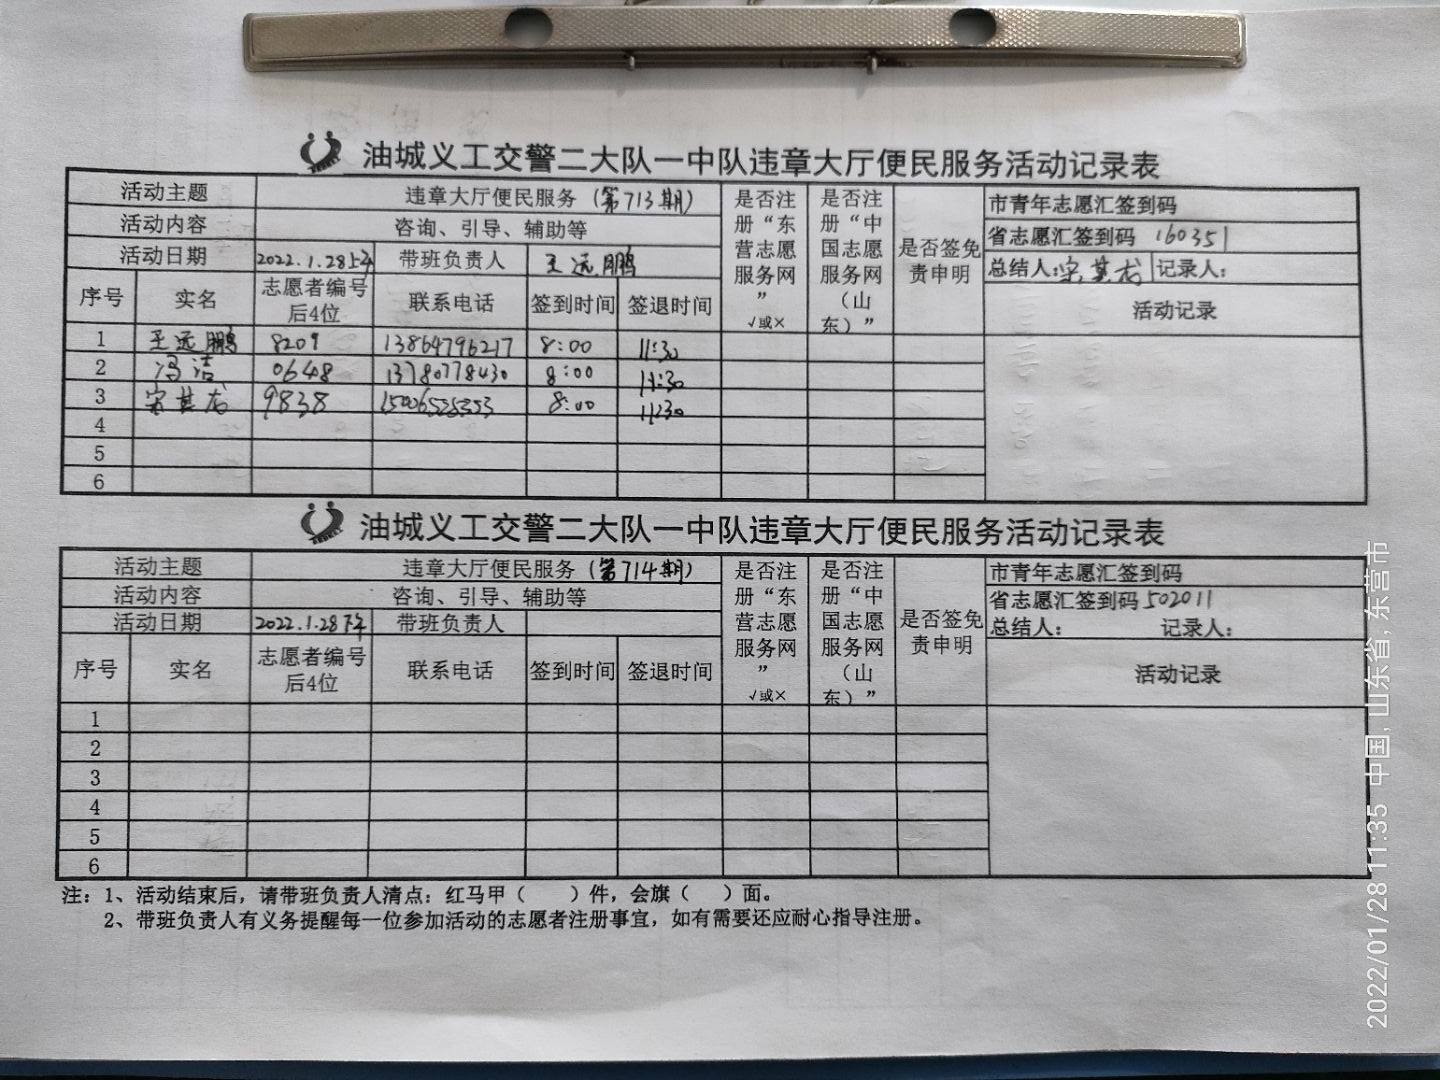 油城义工交警二大队一中队违章大厅便民服务活动记录表
活动主题 违章大厅便民服务（第713期）
活动内容 咨询、引导、辅助等
活动日期 2022.1.28上午 带班负责人 王远鹏
序号 实名 志愿者编号后4位 联系电话 签到时间 签退时间 是否注册“东营志愿服务网” √或× 是否注册“中国志愿服务网（山东）” 是否签免责申明
市青年志愿汇签到码
省志愿汇签到码 160351
总结人：宋其龙 记录人：
活动记录
1 王远鹏 8209 13864796217 8:00 11:30
2 冯洁 0648 13780778430 8:00 11:30
3 宋其龙 9838 15006525353 8:00 11:30
4
5
6
油城义工交警二大队一中队违章大厅便民服务活动记录表
活动主题 违章大厅便民服务（第714期）
活动内容 咨询、引导、辅助等
活动日期 2022.1.28下午 带班负责人
序号 实名 志愿者编号后4位 联系电话 签到时间 签退时间 是否注册“东营志愿服务网” √或× 是否注册“中国志愿服务网（山东）” 是否签免责申明
市青年志愿汇签到码
省志愿汇签到码 502011
总结人： 记录人：
活动记录
1
2
3
4
5
6
注：1、活动结束后，请带班负责人清点：红马甲（ ）件，会旗（ ）面。
2、带班负责人有义务提醒每一位参加活动的志愿者注册事宜，如有需要还应耐心指导注册。
2022/01/28 11:35 中国,山东省,东营市